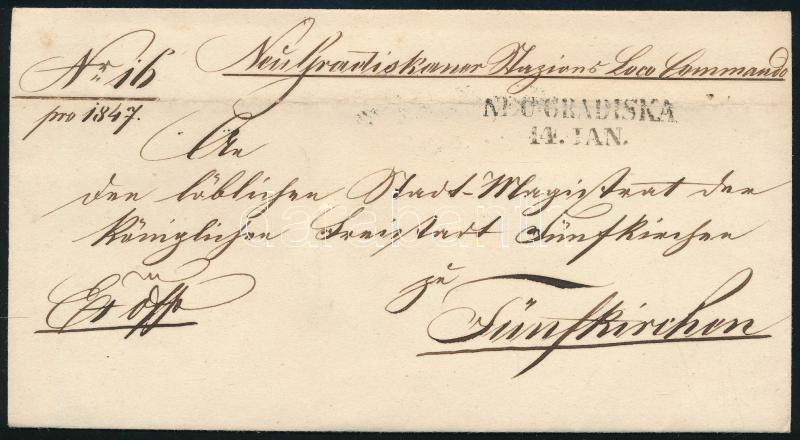 Nr. 16
pro 1847.
NeuGradiskaner Stazions Loco Commando
NEUGRADISKA
14. JAN.
An
den löblichen Stadt-Magistrat der
königlichen Freistadt Fünfkirchen
zu
Fünfkirchen
Ex offo
darabanth